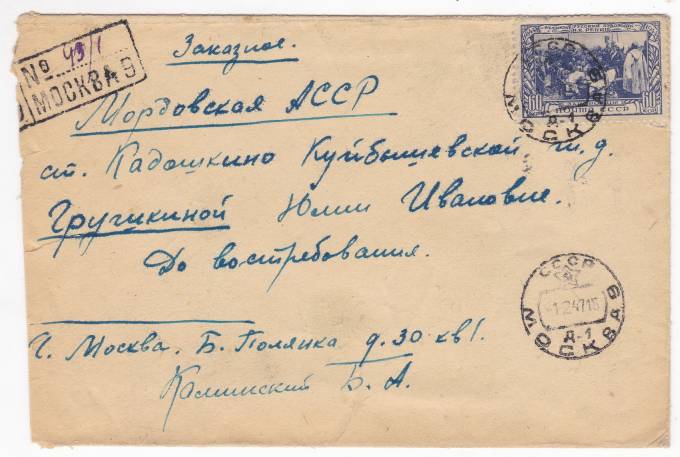 Заказное.
№ 49/1
МОСКВА 9
Мордовская АССР
ст. Кадошкино Куйбышевской ж.д.
Гручикиной Юлии Ивановне.
До востребования.
ПОЧТА СССР
СССР
МОСКВА 9
Д-1
СССР
-1.2.47 15
МОСКВА 9
Д-1
г. Москва. Б. Полянка д. 30 кв 1.
Калинский Б. А.